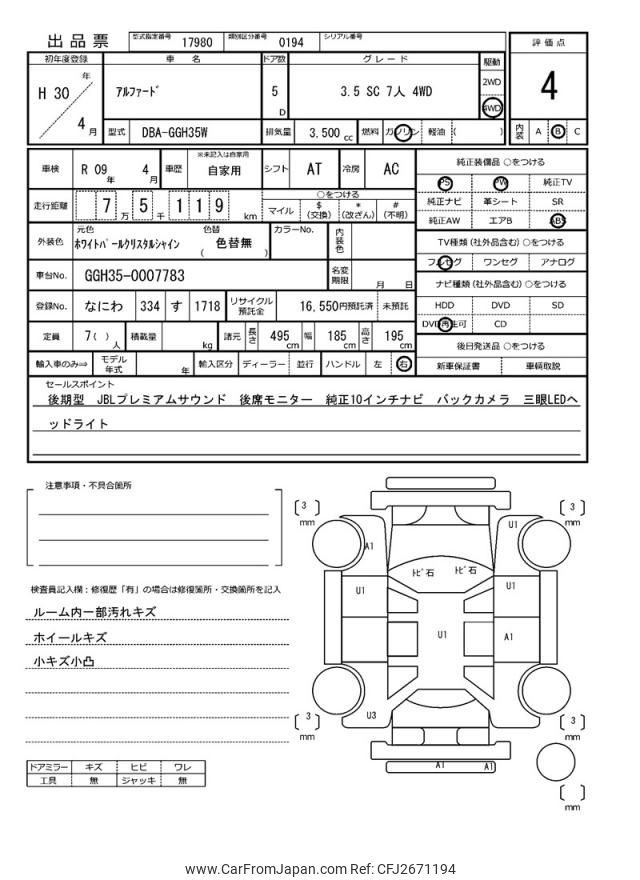 出品票 型式指定番号 17980 類別区分番号 0194 シリアル番号
初年度登録 車名 ドア数 グレード 駆動 評価点
H 30 年 4 月 アルファード 5 D 3.5 SC 7人 4WD 2WD 4WD 4
型式 DBA-GGH35W 排気量 3,500 cc 燃料 ガソリン 軽油 ( ) 内装 A B C
車検 R 09 年 4 月 車歴 ※未記入は自家用 自家用 シフト AT 冷房 AC
走行距離 7 万 5 千 1 1 9 km ○をつける マイル $ (交換) * (改ざん) # (不明)
外装色 元色 ホワイトパールクリスタルシャイン 色替 ( 色替無 ) カラーNo. 内装色
車台No. GGH35-0007783 名変期限 月 日
登録No. なにわ 334 す 1718 リサイクル預託金 16,550円預託済 未預託
定員 7 ( ) 人 積載量 kg 諸元 長さ 495 cm 幅 185 cm 高さ 195 cm
輸入車のみ⇒ モデル年式 年 輸入区分 ディーラー 並行 ハンドル 左 右
純正装備品 ○をつける
PS PW 純正TV
純正ナビ 革シート SR
純正AW エアB ABS
TV種類 (社外品含む) ○をつける
フルセグ ワンセグ アナログ
ナビ種類 (社外品含む) ○をつける
HDD DVD SD
DVD再生可 CD
後日発送品 ○をつける
新車保証書 車輌取説
セールスポイント
後期型 JBLプレミアムサウンド 後席モニター 純正10インチナビ バックカメラ 三眼LEDヘ
ッドライト
注意事項・不具合箇所
検査員記入欄：修復歴「有」の場合は修復箇所・交換箇所を記入
ルーム内一部汚れキズ
ホイールキズ
小キズ小凸
ドアミラー キズ ヒビ ワレ
工具 無 ジャッキ 無
3 mm 3 mm
A1 U1
トビ石 トビ石
U1 U1
U1 A1
U3
3 mm 3 mm
A1 A1
mm
www.CarFromJapan.com Ref: CFJ2671194